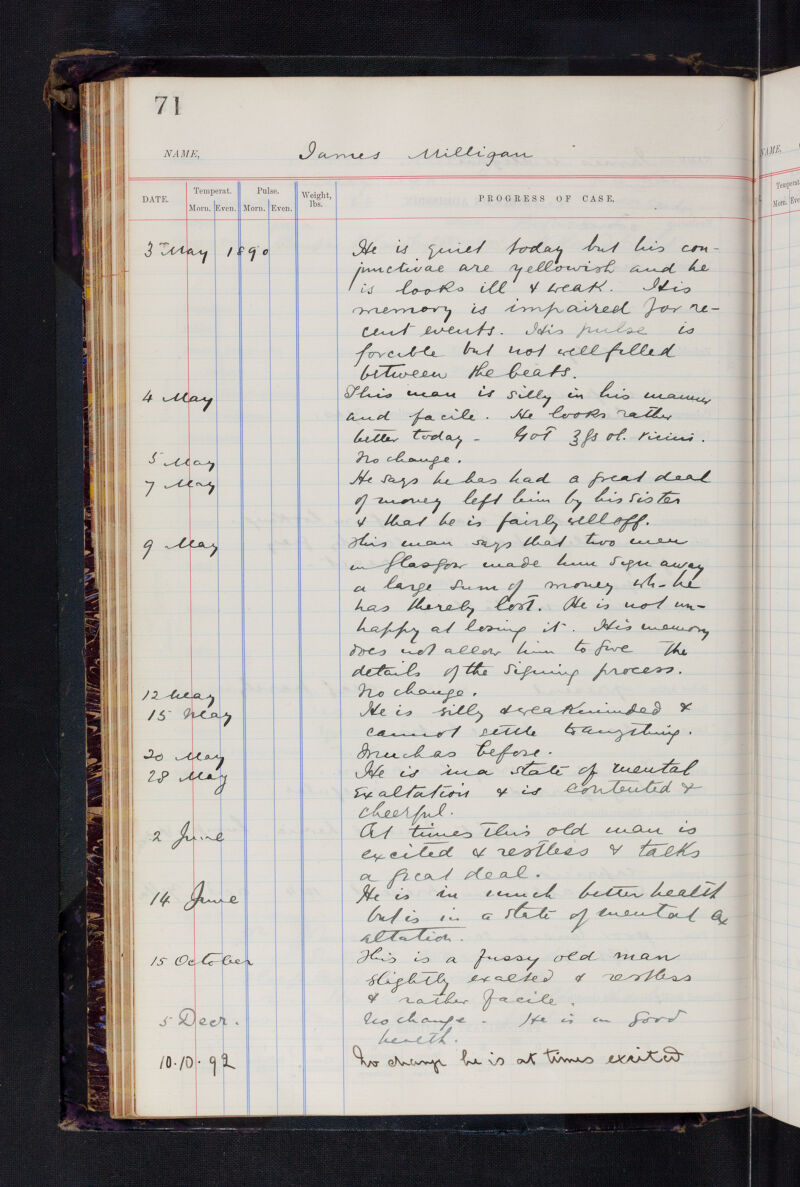 71
NAME, James Milligan
DATE. Temperat. Pulse. Weight, lbs. PROGRESS OF CASE.
Morn. Even. Morn. Even.
3 May 1890 He is quiet today but his con-
junctivae are yellowish and he
is looks ill & weak. His
memory is impaired for re-
cent events. His pulse is
forcible but not well filled
between the beats.
4 May This man is silly in his manner
and facile. He looks rather
better today - Got ℥fs ol. ricini.
5 May No change.
7 May He says he has had a great deal
of money left him by his sister
& that he is fairly well off.
9 May This man says that two men
in Glasgow made him sign away
a large sum of money wh- he
has thereby lost. He is not un-
happy at losing it. His memory
does not allow him to give the
details of the signing process.
12 May No change.
15 May He is silly & weakminded &
cannot settle to anything.
20 May Much as before.
28 May He is in a state of mental
Exaltation & is contented &
cheerful.
2 June At times this old man is
excited & restless & talks
a great deal.
14 June He is in much better health
but is in a state of mental ex
altation.
15 October This is a fussy old man
slightly exalted & restless
& rather facile.
5 Decr. No change. He is in good
health.
10.10.92 No change he is at times excited
NAME,
Temperat
Morn. Eve